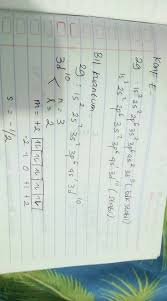 29 : 1s² 2s² 2p⁶ 3s² 3p⁶ 4s² 3d⁹
1s² 2s² 2p⁶ 3s² 3p⁶ 4s¹ 3d¹⁰
Bil. kuantum
29 : 1s² 2s² 2p⁶ 3s² 3p⁶ 4s¹ 3d¹⁰
3d¹⁰ < n = 3
l = 2
m = +2
-2 -1 0 +1 +2
s = -1/2